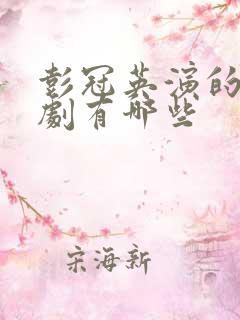 彭冠英演的
劇有哪些
宋海新